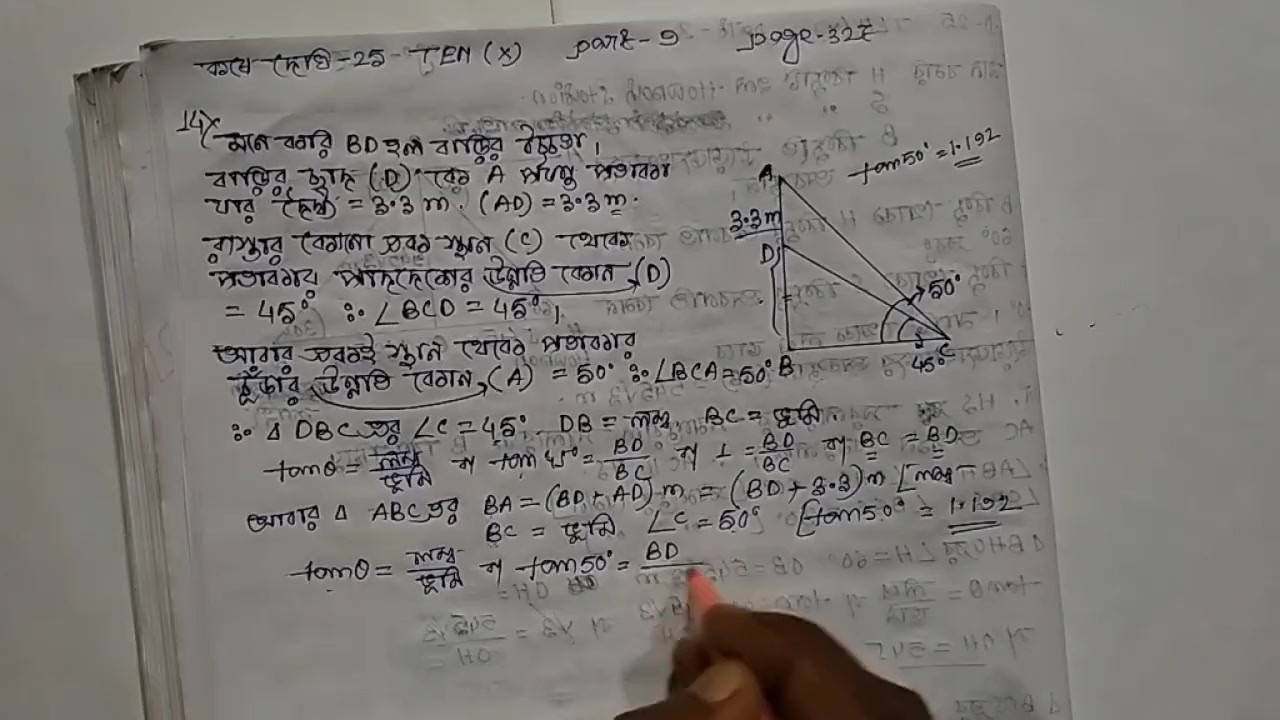 কষে দেখি-25 TEN (X) part-9 page-327
14)
মনে করি BD হল বাড়ির উচ্চতা।
বাড়ির ছাদ (D) থেকে A পর্যন্ত পতাকা
যার দৈর্ঘ্য = 3.3 m. (AD) = 3.3 m.
রাস্তার কোনো এক স্থান (C) থেকে
পতাকার পাদদেশের উন্নতি কোন (D)
= 45° ∴ ∠BCD = 45°।
আবার একই স্থান থেকে পতাকার
চূড়ার উন্নতি কোন (A) = 50° ∴ ∠BCA = 50°
∴ Δ DBC এর ∠C = 45° DB = লম্ব BC = ভূমি
tanθ = লম্ব/ভূমি বা tan 45° = BD/BC বা 1 = BD/BC বা BC = BD
আবার Δ ABC এর BA = (BD + AD) m = (BD + 3.3) m [লম্ব
BC = ভূমি ∠C = 50° [tan50° = 1.192
tanθ = লম্ব/ভূমি বা tan50° = BD
tan50° = 1.192
A
3.3 m
D
50°
B
45°
C